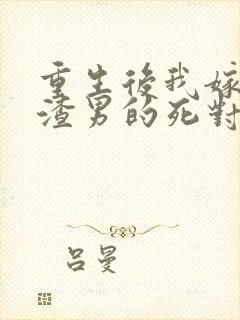 重生後我嫁
渣男的死對
吕曼